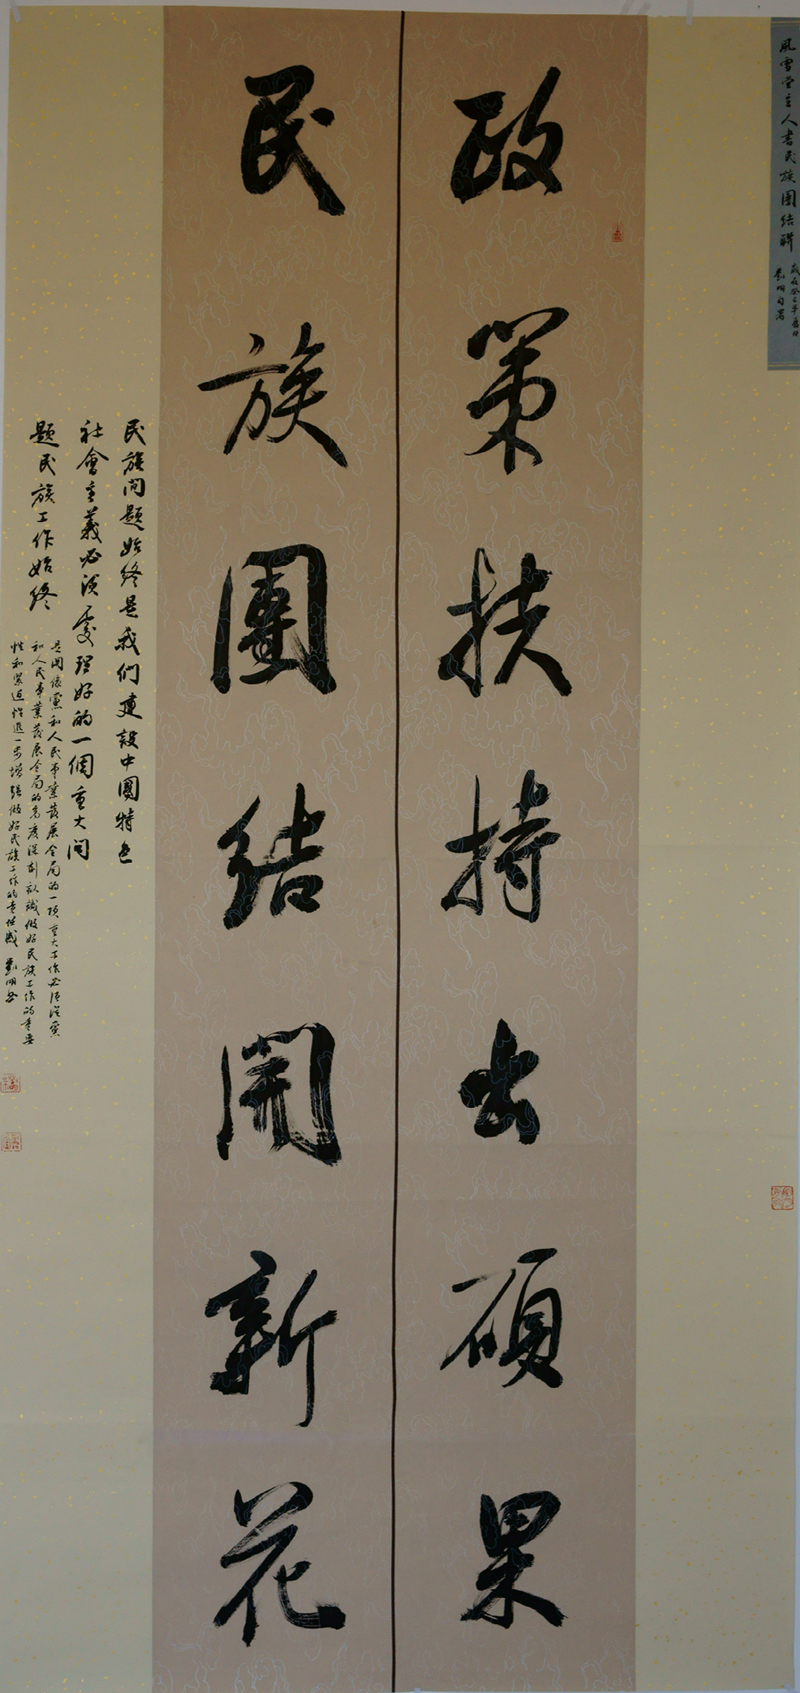 風雪堂主人書民族團結聯
歲在癸巳年春日
劉明自署
政策扶持出碩果
民族團結開新花
民族问题始终是我们建設中國特色
社會主義必须處理好的一個重大问
题民族工作始终
是関係黨和人民事業發展全局的一项重大工作必须從黨
和人民事業發展全局的高度深刻認識做好民族工作的重要
性和紧迫性進一步增强做好民族工作的責任感 劉明書